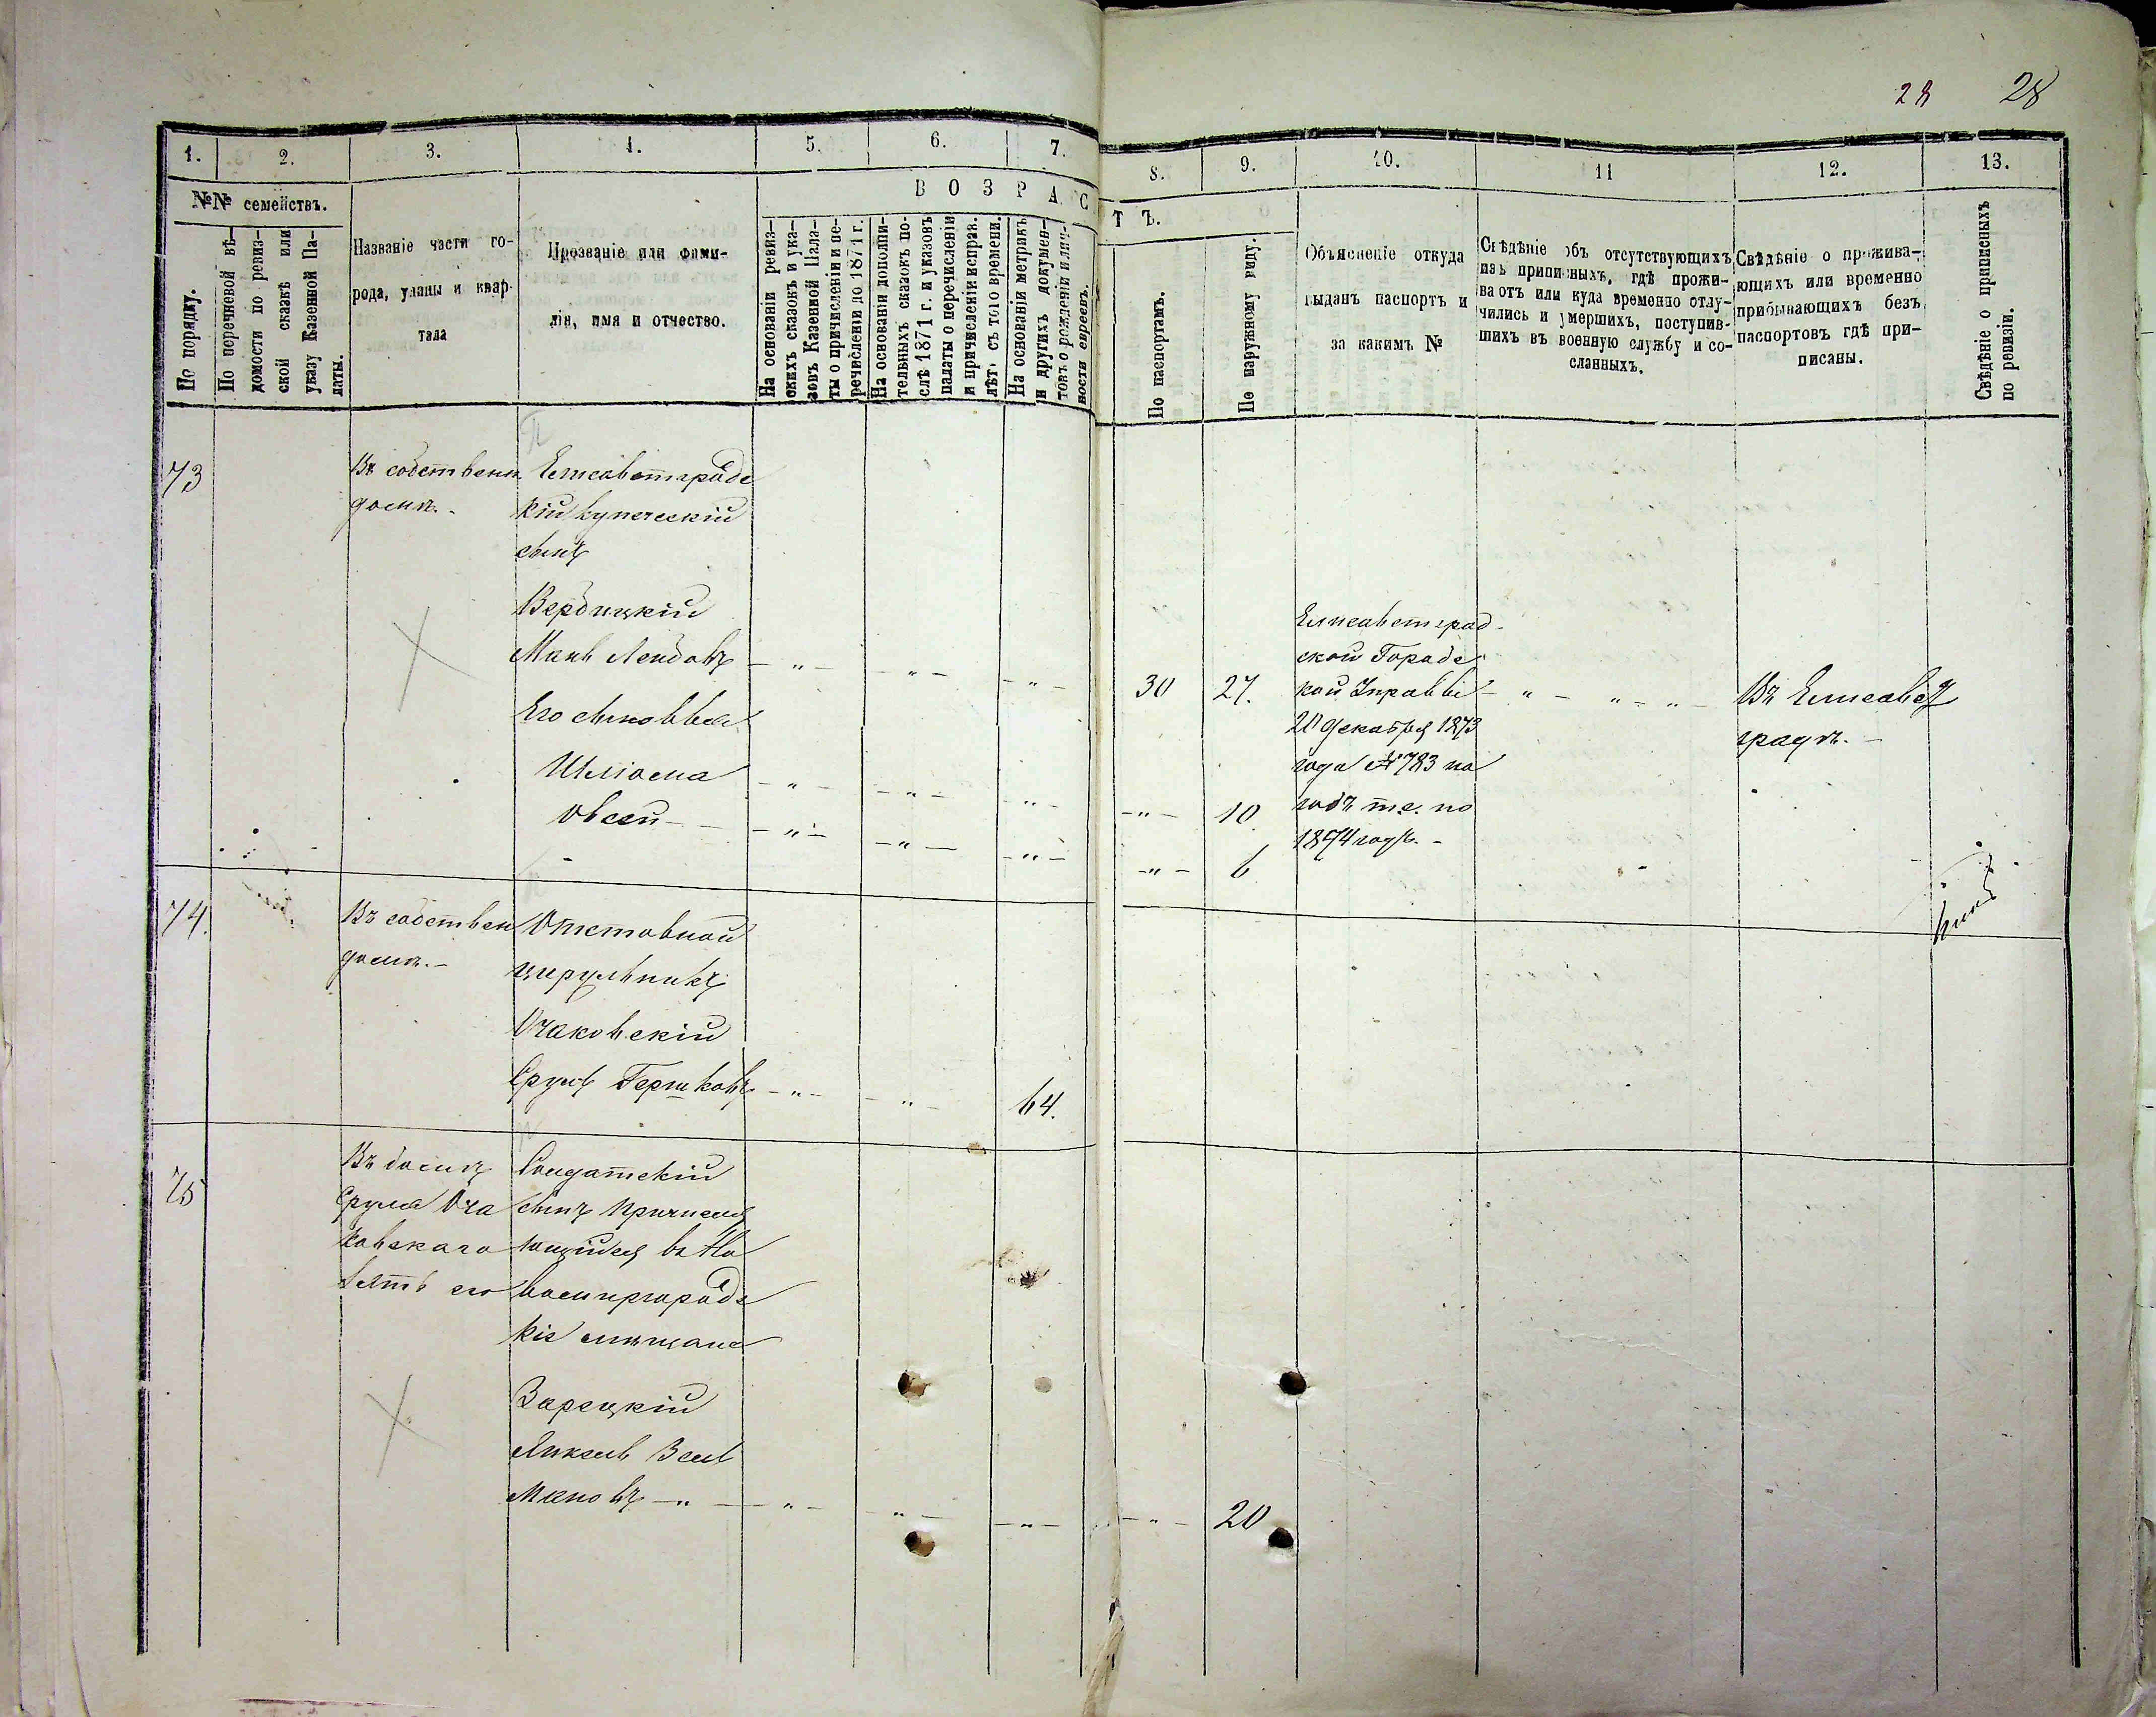 28 28
1. 2. 3. 4. 5. 6. 7. 8. 9. 10. 11 12. 13.
№№ семействъ.
По порядку.
По перечневой вѣ-
домости по ревиз-
ской сказкѣ или
указу Казенной Па-
латы.
Названіе части го-
рода, улицы и квар-
тала
Прозваніе или фами-
лія, имя и отчество.
ВОЗРАСТЪ.
На основаніи ревиз-
скихъ сказокъ и ука-
зовъ Казенной Пала-
ты о причисленіи и пе-
речисленіи до 1871 г.
На основаніи дополни-
тельныхъ сказокъ по-
слѣ 1871 г. и указовъ
палаты о перечисленіи
и причисленіи исправ.
лѣтъ съ того времени.
На основаніи метрикъ
и другихъ докумен-
товъ о рожденіи и лич-
ности евреевъ.
По паспортамъ.
По наружному виду.
Объясненіе откуда
выданъ паспортъ и
за какимъ №
Свѣдѣніе объ отсутствующихъ
изъ приписныхъ, гдѣ прожи-
ваютъ или куда временно отлу-
чились и умершихъ, поступив-
шихъ въ военную службу и со-
сланныхъ.
Свѣдѣніе о прожива-
ющихъ или временно
прибывающихъ безъ
паспортовъ гдѣ при-
писаны.
Свѣдѣніе о приписныхъ
по ревизіи.
73
Въ собствен.
домѣ.-
Елисаветградс
кій купеческій
сынъ
Вербицкій
Манъ Лейбовъ - „ - - „ - - „ - 30 27.
Его сыновья
Шліома - „ - - „ - - „ - - „ - 10
Овсей - - „ - - „ - - „ - - „ - 6
Елисаветград-
ской Городс
кой Управы - „ - „ - „ -
20 декабря 1873
года № 783 на
годъ т.е. по
1874 годъ. -
Въ Елисавет
градѣ. -
74.
Въ собствен
домѣ.-
Отставной
цирульникъ
Очаковскій
Сруль Гершковъ - „ - - „ - 64.
75
Въ домѣ
Сруля Оча
ковскаго
зять его
Солдатскій
сынъ причисля
ющійся въ Но
вомиргородс
кіе мѣщане
Зарецкій
Янкель Зель
мановъ - „ - - „ - - „ - - „ - - „ - 20